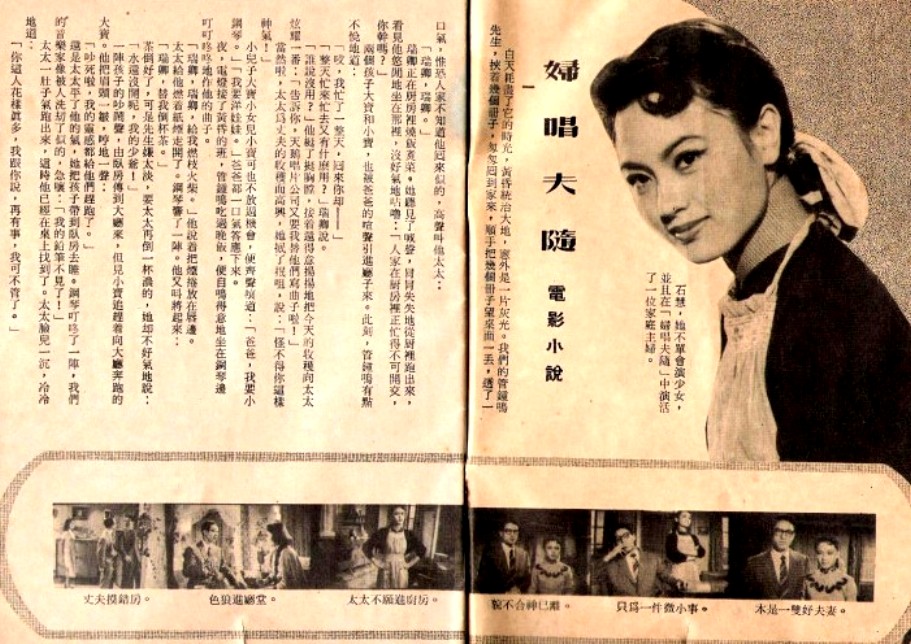 婦唱夫隨
電影小說
石慧，她不單會演少女，
並且在「婦唱夫隨」中演活
了一位家庭主婦。
一
白天耗盡了它的時光，黃昏統治大地，窗外是一片灰光。我們的管鐘鳴
先生，挾着幾個冊子，匆匆回到家來，順手把幾個冊子望桌面一丟，透了一
口氣，惟恐人家不知道他回來似的，高聲叫他太太：
「瑞卿，瑞卿。」
瑞卿正在廚房裡燒飯煮菜。她聽見了喊聲，冒冒失失地從廚裡跑出來，
看見他悠閒地坐在那裡，沒好氣地咕嚕：「人家在廚房裡正忙得不可開交，
你幹嗎？」
兩個孩子大寶和小寶，也被爸爸的喧聲引進廳子來。此刻，管鐘鳴有點
不悅地道：
「哎，我忙了一整天，回來你却——」
「整天忙來忙去又有什麼用？」瑞卿說。
「誰說沒用？」他挺了挺胸膛，接着還得意揚揚地把今天的收穫向太太
炫耀一番：「告訴你，天鵝唱片公司又要我替他們寫曲子啦！」
當然啦，太太爲丈夫的收穫而高興，她抿了抿咀，說：「怪不得你這樣
神氣！」
小兒子大寶小女兒小寶可也不放過機會，便齊聲嚷道：「爸爸，我要小
鋼琴。」「我要洋娃娃。」爸爸都一口氣答應下來。
夜，電燈接了黃昏的班，管鐘鳴吃過晚飯，便自鳴得意地坐在鋼琴邊
叮叮咚咚地作他的曲子。
「瑞卿，瑞卿，給我燃枝火柴。」他說着把煙捲放在唇邊。
太太給他燃着紙煙走開了。鋼琴響了一陣。他又叫將起來：
「瑞卿，替我倒杯茶。」
茶倒好了，可是先生嫌太淡，要太太再倒一杯濃的，她却不好氣地說：
「水還沒開呢，我的少爺！」
一陣孩子的吵鬧聲，由臥房傳到大廳來，但見小寶追趕着向大廳奔跑的
大寶。他把眉頭一皺，哼地一聲：
「吵死啦，我的靈感都給他們趕跑了。」
還是太太平了他的氣，她把孩子帶到臥房去睡。鋼琴叮咚了一陣，我們
的音樂家像被人洗刧了似的，急嚷：「我的鉛筆不見了！」
太太一肚子氣跑出來，這時他已經在桌上找到了。太太臉兒一沉，冷冷
地道：
「你這人花樣眞多，我跟你說，再有事，我可不管了。」
本是一雙好夫妻。
只爲一件微小事。
貌不合神已離。
太太不願進廚房。
色狼進廳堂。
丈夫摸錯房。